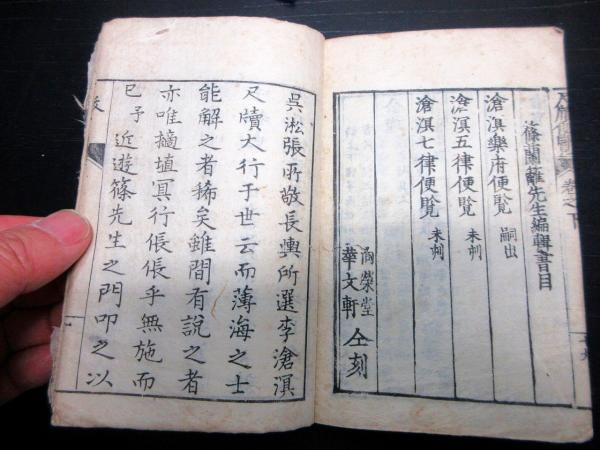 卷之下
先生編輯書目
滄溟樂府便覧 嗣出
滄溟五律便覧 未刋
滄溟七律便覧 未刋
華文軒
仝刻
呉淞張所敬長輿所選李滄溟
尺牘大行于世云而薄海之士
能解之者稀矣雖間有説之者
亦唯擿埴冥行倀倀乎無施而
已予 近遊篠先生之門叩之以